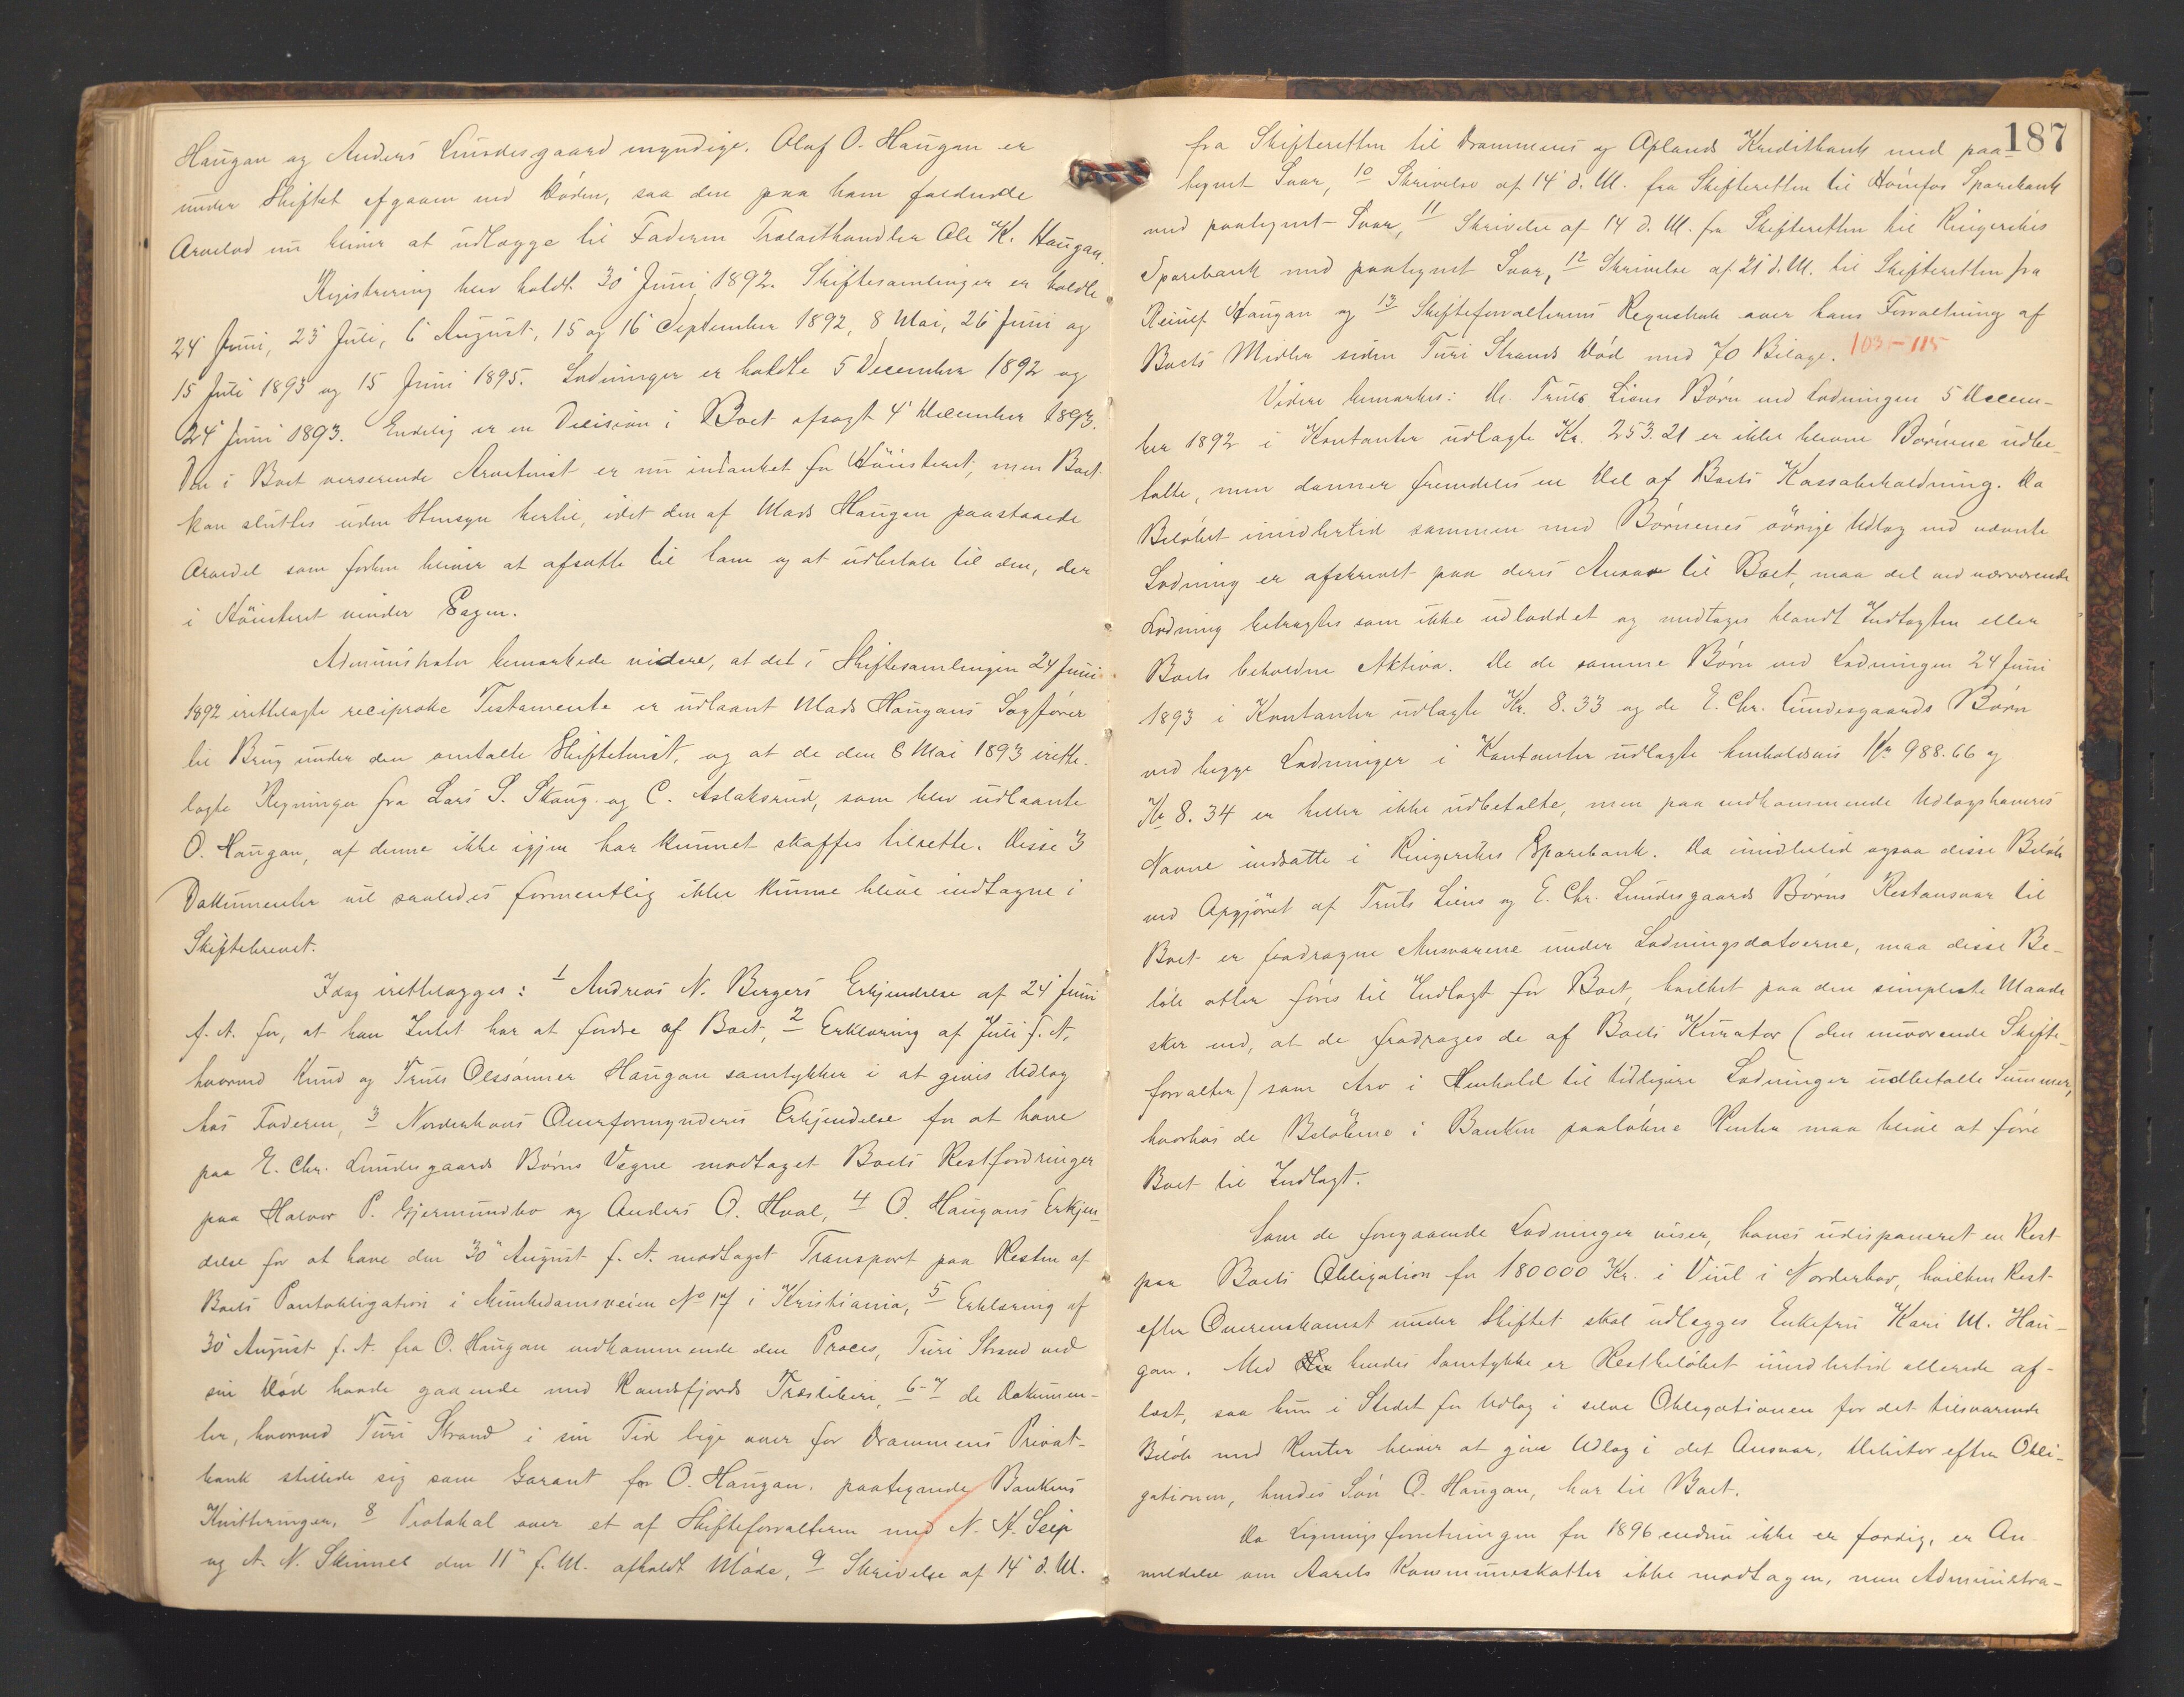 Haugan og Anders Lundesgaard myndige. Oluf O. Haugan er
under Skiftet afgaaen ved Døden, saa den paa ham faldende
Arvelod nu bliver at udlægge til Faderen Trælasthandler Ole K. Haugan.
Registrering blev holdt 30 Juni 1892. Skiftesamlinger er holdte
24 Juni, 23 Juli, 6 August, 15 og 16 September 1892, 8 Mai, 26 Juni og
15 Juli 1893 og 15 Juni 1895. Lodninger er holdte 5 December 1892 og
24 Juni 1893. Endelig er en Decision i Boet afsagt 4 December 1893.
Den i Boet verserende Arvetvist er nu indanket for Höiesteret, men Boet
kan sluttes uden Hensyn hertil, idet den af Mads Haugan paastaaede
Arvedel som forhen bliver at afsætte til ham og at udbetale til den, der
i Höiesteret vinder Sagen.
Administrator bemærkede videre, at det i Skiftesamlingen 24 Juni
1892 irettelagte reciproke Testamente er udlaant Mads Haugans Sagfører
til Brug under den omtalte Skiftetvist, og at de den 8 Mai 1893 irette-
lagte Regninger fra Lars S. Skaug og C. Aslaksrud, som blev udlaante
O. Haugan, af denne ikke igjen har kunnet skaffes tilrette. Disse 3
Dokumenter vil saaledes formentlig ikke kunne blive indtagne i
Skiftebrevet.
Idag irettelægges: 1 Andreas N. Bergers Erkjendelse af 24 Juni
f. A. for, at han Intet har at fordre af Boet, 2 Erklæring af Juli f. A,
hvorved Knud og Truls Olssønner Haugan samtykker i at gives Udlæg
hos Faderen, 3 Norderhovs Overformynderis Erkjendelse for at have
paa E. Chr. Lundesgaards Børns Vegne modtaget Boets Restfordringer
paa Halvor P. Gjermundbo og Anders O. Hval, 4 O. Haugans Erkjen-
delse for at have den 30 August f. A. modtaget Transport paa Resten af
Boets Pantobligation i Munkedamsveien No 17 i Kristiania, 5 Erklæring af
30 August f. A. fra O. Haugan vedkommende den Proces, Turi Strand ved
sin Død havde gaaende med Randsfjords Træsliberi, 6-7 de Dokumen-
ter, hvorved Turi Strand i sin Tid lige over for Drammens Privat-
bank stillede sig som Garant for O. Haugan, paategnede Bankens
Kvitteringer, 8 Protokol over et af Skifteforvalteren med N. A. Seip
og A. N. Skinnes den 11 f. M. afholdt Møde, 9 Skrivelse af 14 d. M.
187
fra Skifteretten til Drammens og Oplands Kreditbank med paa-
tegnet Svar, 10 Skrivelse af 14 d. M. fra Skifteretten til Hønefos Sparebank
med paategnet Svar, 11 Skrivelse af 14 d. M. fra Skifteretten til Ringerikes
Sparebank med paategnet Svar, 12 Skrivelse af 21 d. M. til Skifteretten fra
Haugan og 13 Skifteforvalterens Regnskab over hans Forvaltning af
Boets Midler siden Turi Strands Død med 70 Bilage. 103-115
Videre bemærkes: De Truls Liens Børn ved Lodningen 5 Decem-
ber 1892 i Kontanter udlagte Kr. 253.21 er ikke blevne Børnene udbe-
talte, men danner fremdeles en Del af Boets Kassabeholdning. Da
Beløbet imidlertid sammen med Børnenes øvrige Udlæg ved nævnte
Lodning er afskrevet paa deres Ansvar til Boet, maa det ved nærværende
Lodning betragtes som ikke udloddet og medtages blandt Indtægten eller
Boets beholdne Aktiva. De de samme Børn ved Lodningen 24 Juni
1893 i Kontanter udlagte Kr. 8.33 og de E. Chr. Lundesgaards Børn
ved begge Lodninger i Kontanter udlagte henholdsvis Kr 988.66 og
Kr 8.34 er heller ikke udbetalte, men paa vedkommende Udlægshaveres
Navne indsatte i Ringerikes Sparebank. Da imidlertid ogsaa disse Beløb
ved Opgjøret af Truls Liens og E. Chr. Lundesgaards Børns Restansvar til
Boet er fradragne Ansvarene under Lodningsdatoerne, maa disse Be-
løb atter føres til Indtægt for Boet, hvilket paa den simpleste Maade
sker ved, at de fradrages de af Boets Kurator (den nuværende Skifte-
forvalter) som Arv i Henhold til tidligere Lodninger udbetalte Summer,
hvorhos de Beløbene i Banken paaløbne Renter maa blive at føre
Boet til Indtægt.
Som de foregaaende Lodninger viser, haves udisponeret en Rest
paa Boets Obligation for 180000 Kr. i Viul i Norderhov, hvilken Rest
efter Overenskomst under Skiftet skal udlægges Enkefru Kari M. Hau-
gan. Med hendes Samtykke er Restbeløbet imidlertid allerede af-
løst, saa hun i Stedet for Udlæg i selve Obligationen for det tilsvarende
Beløb med Renter bliver at give Udlæg i det Ansvar, Debitor efter Obli-
gationen, hendes Søn O. Haugan, har til Boet.
Da Ligningsforretningen for 1896 endnu ikke er færdig, er An-
meldelse om Aarets Kommuneskatter ikke modtagen, men Administra-